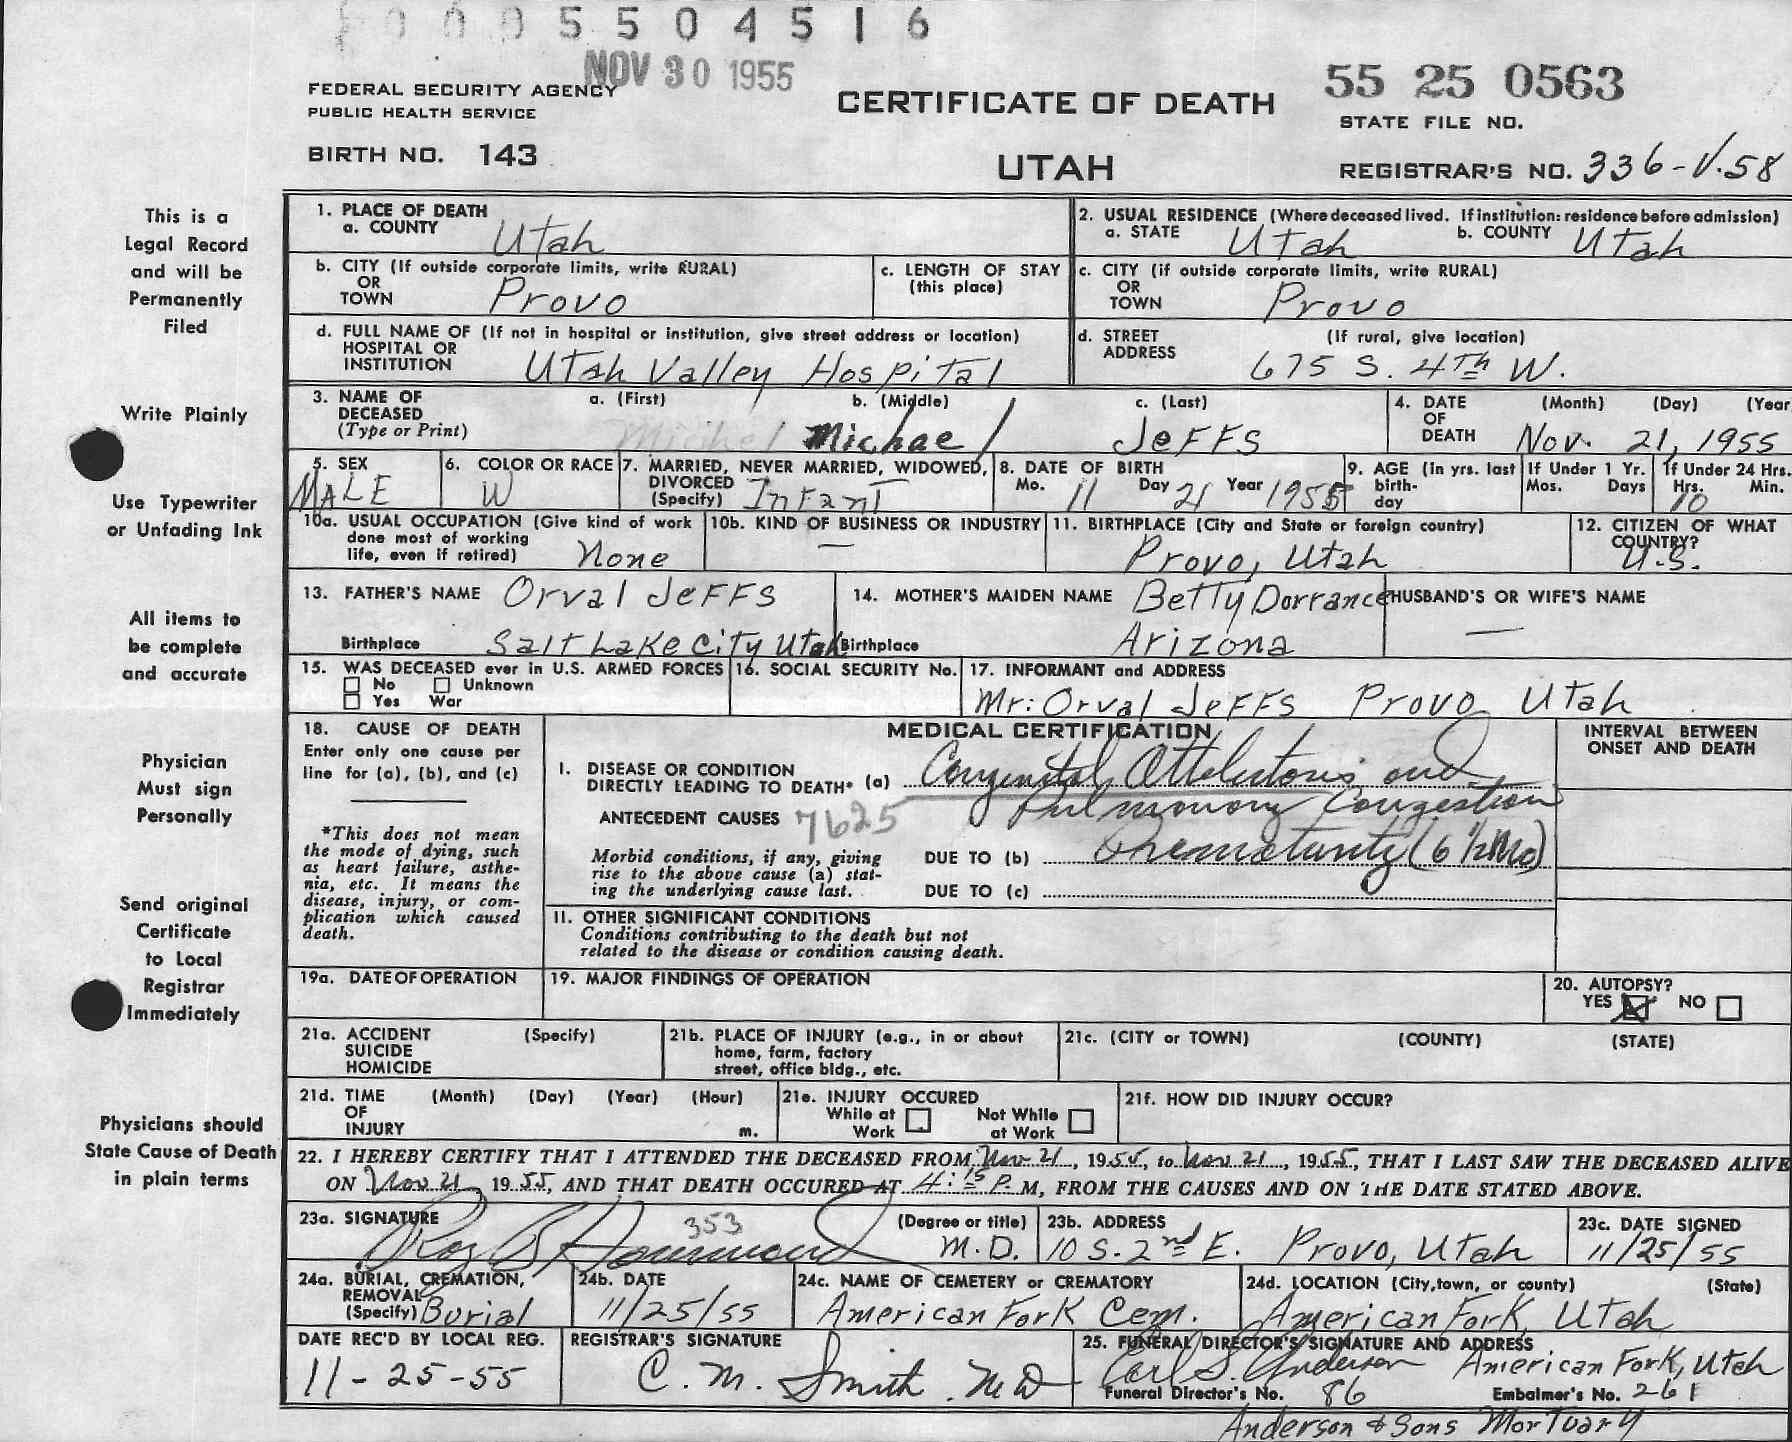 5 5 0 4 5 1 6
NOV 30 1955
55 25 0563
FEDERAL SECURITY AGENCY
PUBLIC HEALTH SERVICE
CERTIFICATE OF DEATH
STATE FILE NO.
BIRTH NO. 143
UTAH
REGISTRAR'S NO. 336-V.58
This is a
Legal Record
and will be
Permanently
Filed
Write Plainly
Use Typewriter
or Unfading Ink
All items to
be complete
and accurate
Physician
Must sign
Personally
Send original
Certificate
to Local
Registrar
Immediately
Physicians should
State Cause of Death
in plain terms
1. PLACE OF DEATH
a. COUNTY Utah
2. USUAL RESIDENCE (Where deceased lived. If institution: residence before admission)
a. STATE Utah b. COUNTY Utah
b. CITY (If outside corporate limits, write RURAL)
OR
TOWN Provo
c. LENGTH OF STAY
(this place)
c. CITY (if outside corporate limits, write RURAL)
OR
TOWN Provo
d. FULL NAME OF (If not in hospital or institution, give street address or location)
HOSPITAL OR
INSTITUTION Utah Valley Hospital
d. STREET (If rural, give location)
ADDRESS 675 S. 4th W.
3. NAME OF a. (First) b. (Middle) c. (Last)
DECEASED
(Type or Print) Michel Michael Jeffs
4. DATE (Month) (Day) (Year
OF
DEATH Nov. 21, 1955
5. SEX
MALE
6. COLOR OR RACE
W
7. MARRIED, NEVER MARRIED, WIDOWED,
DIVORCED
(Specify) Infant
8. DATE OF BIRTH
Mo. 11 Day 21 Year 1955
9. AGE (In yrs. last
birth-
day
If Under 1 Yr.
Mos. Days
If Under 24 Hrs.
Hrs. Min.
10
10a. USUAL OCCUPATION (Give kind of work
done most of working
life, even if retired) None
10b. KIND OF BUSINESS OR INDUSTRY
—
11. BIRTHPLACE (City and State or foreign country)
Provo, Utah
12. CITIZEN OF WHAT
COUNTRY?
U.S.
13. FATHER'S NAME Orval Jeffs
Birthplace Salt Lake City Utah
14. MOTHER'S MAIDEN NAME Betty Dorrance
Birthplace Arizona
HUSBAND'S OR WIFE'S NAME
—
15. WAS DECEASED ever in U.S. ARMED FORCES
No Unknown
Yes War
16. SOCIAL SECURITY No.
17. INFORMANT and ADDRESS
Mr: Orval Jeffs Provo Utah
18. CAUSE OF DEATH
Enter only one cause per
line for (a), (b), and (c)
*This does not mean
the mode of dying, such
as heart failure, asthe-
nia, etc. It means the
disease, injury, or com-
plication which caused
death.
MEDICAL CERTIFICATION
INTERVAL BETWEEN
ONSET AND DEATH
I. DISEASE OR CONDITION
DIRECTLY LEADING TO DEATH* (a) Congenital Attelectasis and
Pulmonary Congestion
ANTECEDENT CAUSES 7625
Morbid conditions, if any, giving
rise to the above cause (a) stat-
ing the underlying cause last.
DUE TO (b) Prematurity (6 1/2 Mo)
DUE TO (c)
II. OTHER SIGNIFICANT CONDITIONS
Conditions contributing to the death but not
related to the disease or condition causing death.
19a. DATE OF OPERATION
19. MAJOR FINDINGS OF OPERATION
20. AUTOPSY?
YES NO
21a. ACCIDENT (Specify)
SUICIDE
HOMICIDE
21b. PLACE OF INJURY (e.g., in or about
home, farm, factory
street, office bldg., etc.
21c. (CITY or TOWN) (COUNTY) (STATE)
21d. TIME (Month) (Day) (Year) (Hour)
OF
INJURY m.
21e. INJURY OCCURED
While at Not While
Work at Work
21f. HOW DID INJURY OCCUR?
22. I HEREBY CERTIFY THAT I ATTENDED THE DECEASED FROM Nov 21, 1955, to Nov 21, 1955, THAT I LAST SAW THE DECEASED ALIVE
ON Nov 21 1955, AND THAT DEATH OCCURED AT 4:15 P. M, FROM THE CAUSES AND ON THE DATE STATED ABOVE.
23a. SIGNATURE 353 (Degree or title)
Roy B M.D.
23b. ADDRESS
10 S. 2nd E. Provo, Utah
23c. DATE SIGNED
11/25/55
24a. BURIAL, CREMATION,
REMOVAL
(Specify) Burial
24b. DATE
11/25/55
24c. NAME OF CEMETERY or CREMATORY
American Fork Cem.
24d. LOCATION (City, town, or county) (State)
American Fork, Utah
DATE REC'D BY LOCAL REG.
11-25-55
REGISTRAR'S SIGNATURE
C. M. Smith MD
25. FUNERAL DIRECTOR'S SIGNATURE AND ADDRESS
Carl S. Anderson American Fork, Utah
Funeral Director's No. 86 Embalmer's No. 261
Anderson & Sons Mortuary